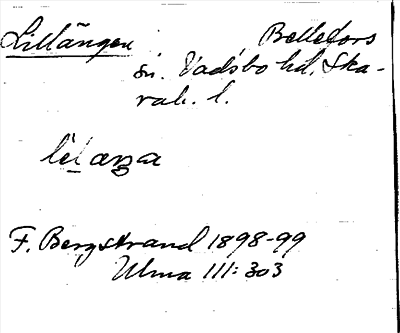 Lillängen Bellefors
sn. Vadsbo hd, Ska-
rab. l.
F. Bergstrand 1898-99
Ulma 111:303